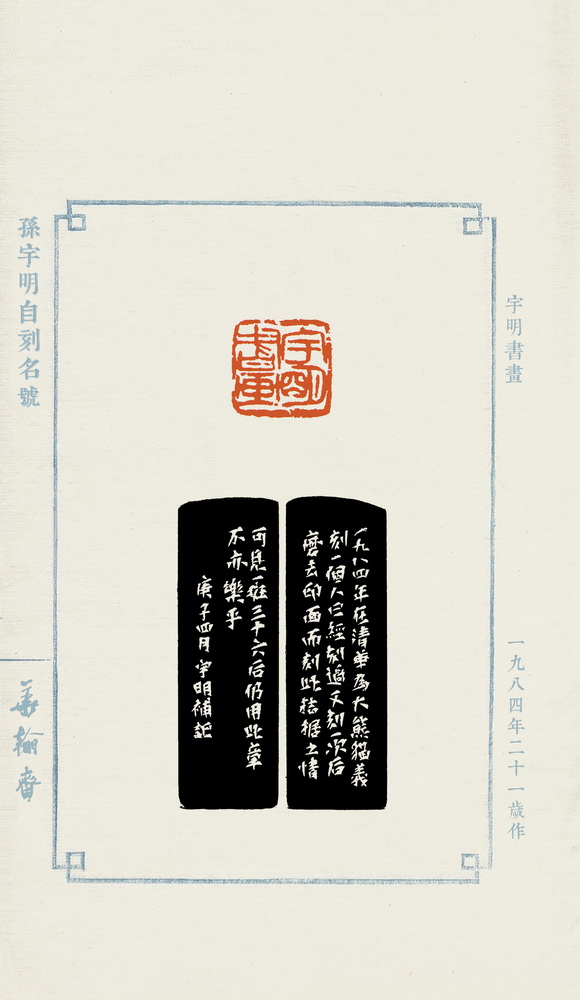 宇明書畫
一九八四年二十一歲作
宇明
一九八四年在清華為大熊貓義
刻一個人已經刻過又刻一次后
磨去印面而刻此拮据之情
可見一班三十六后仍用此章
不亦樂乎
庚子四月宇明補記
孫宇明自刻名號
華翰齋